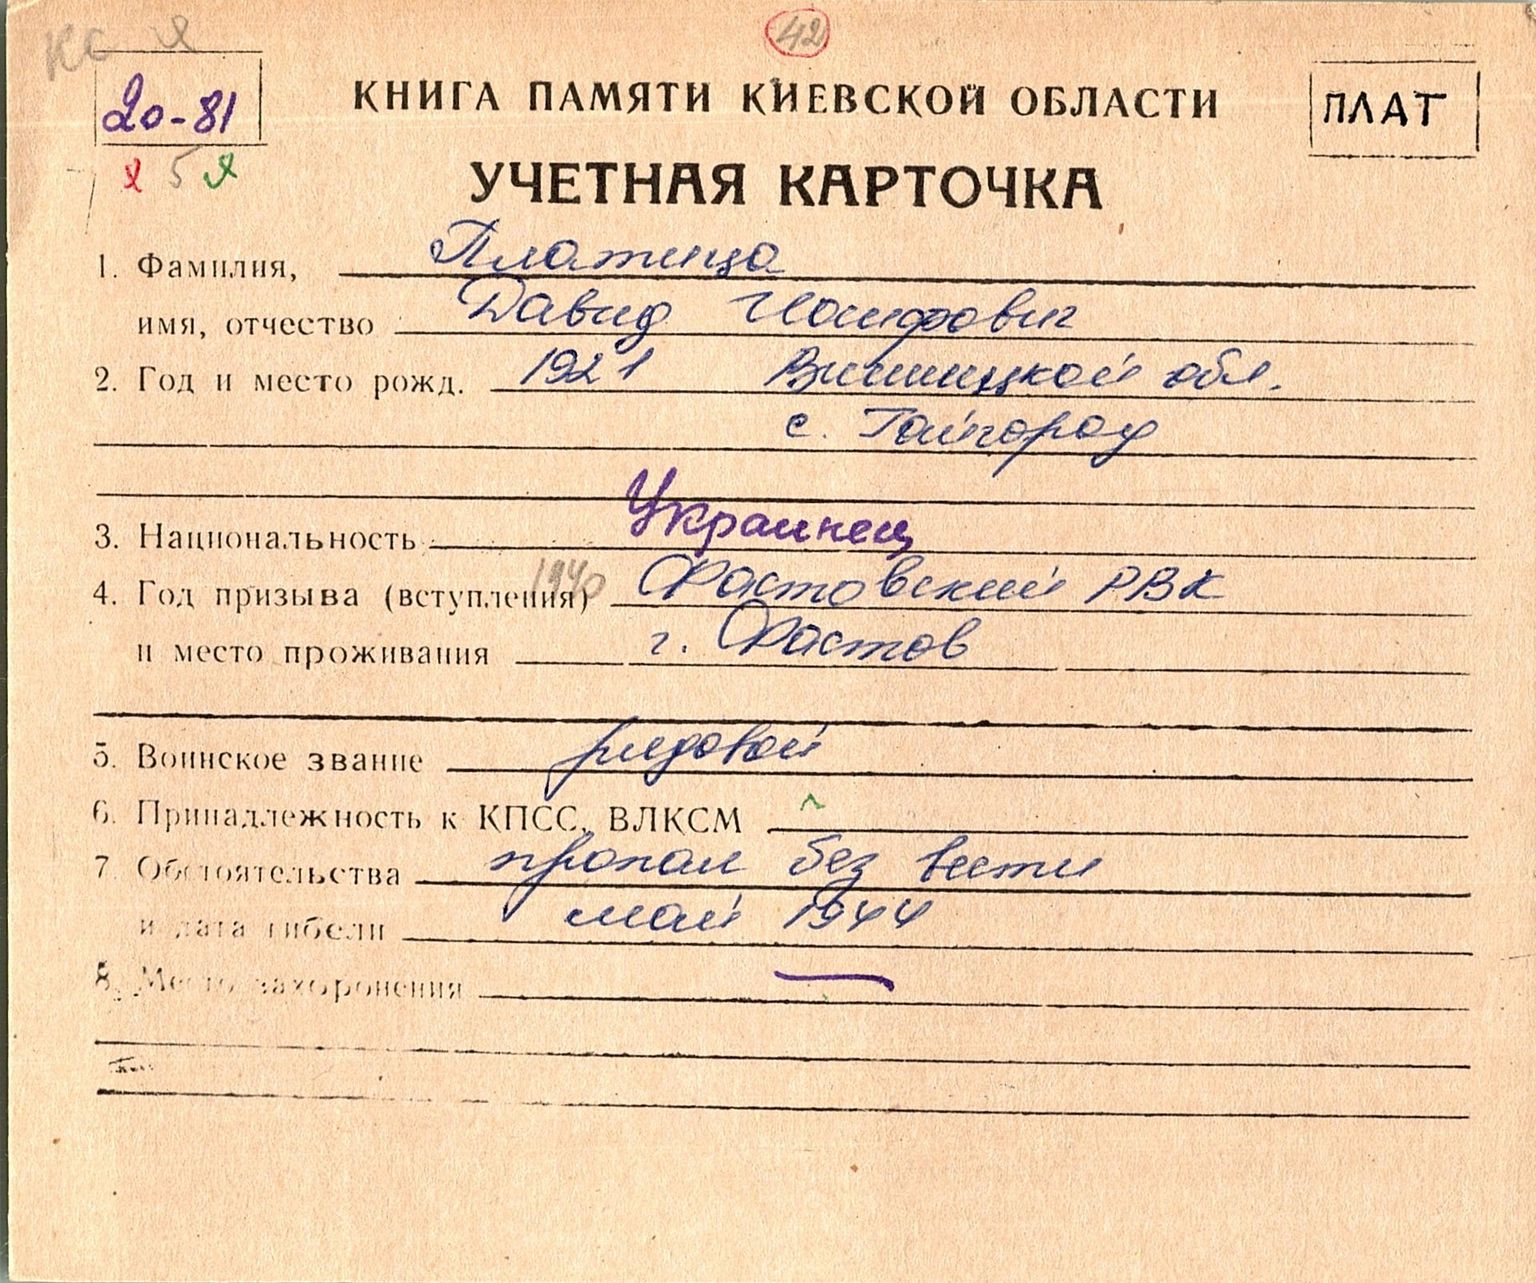 42
20-81
КНИГА ПАМЯТИ КИЕВСКОЙ ОБЛАСТИ
ПЛАТ
5
УЧЕТНАЯ КАРТОЧКА
1. Фамилия, Платица
имя, отчество Давид Иосифович
2. Год и место рожд. 1921 Винницкой обл.
с. Гайгород
3. Национальность Украинец
4. Год призыва (вступления) 1940 Фастовский РВК
и место проживания г. Фастов
5. Воинское звание рядовой
6. Принадлежность к КПСС, ВЛКСМ
7. Обстоятельства пропал без вести
и дата гибели май 1944
8. Место захоронения —